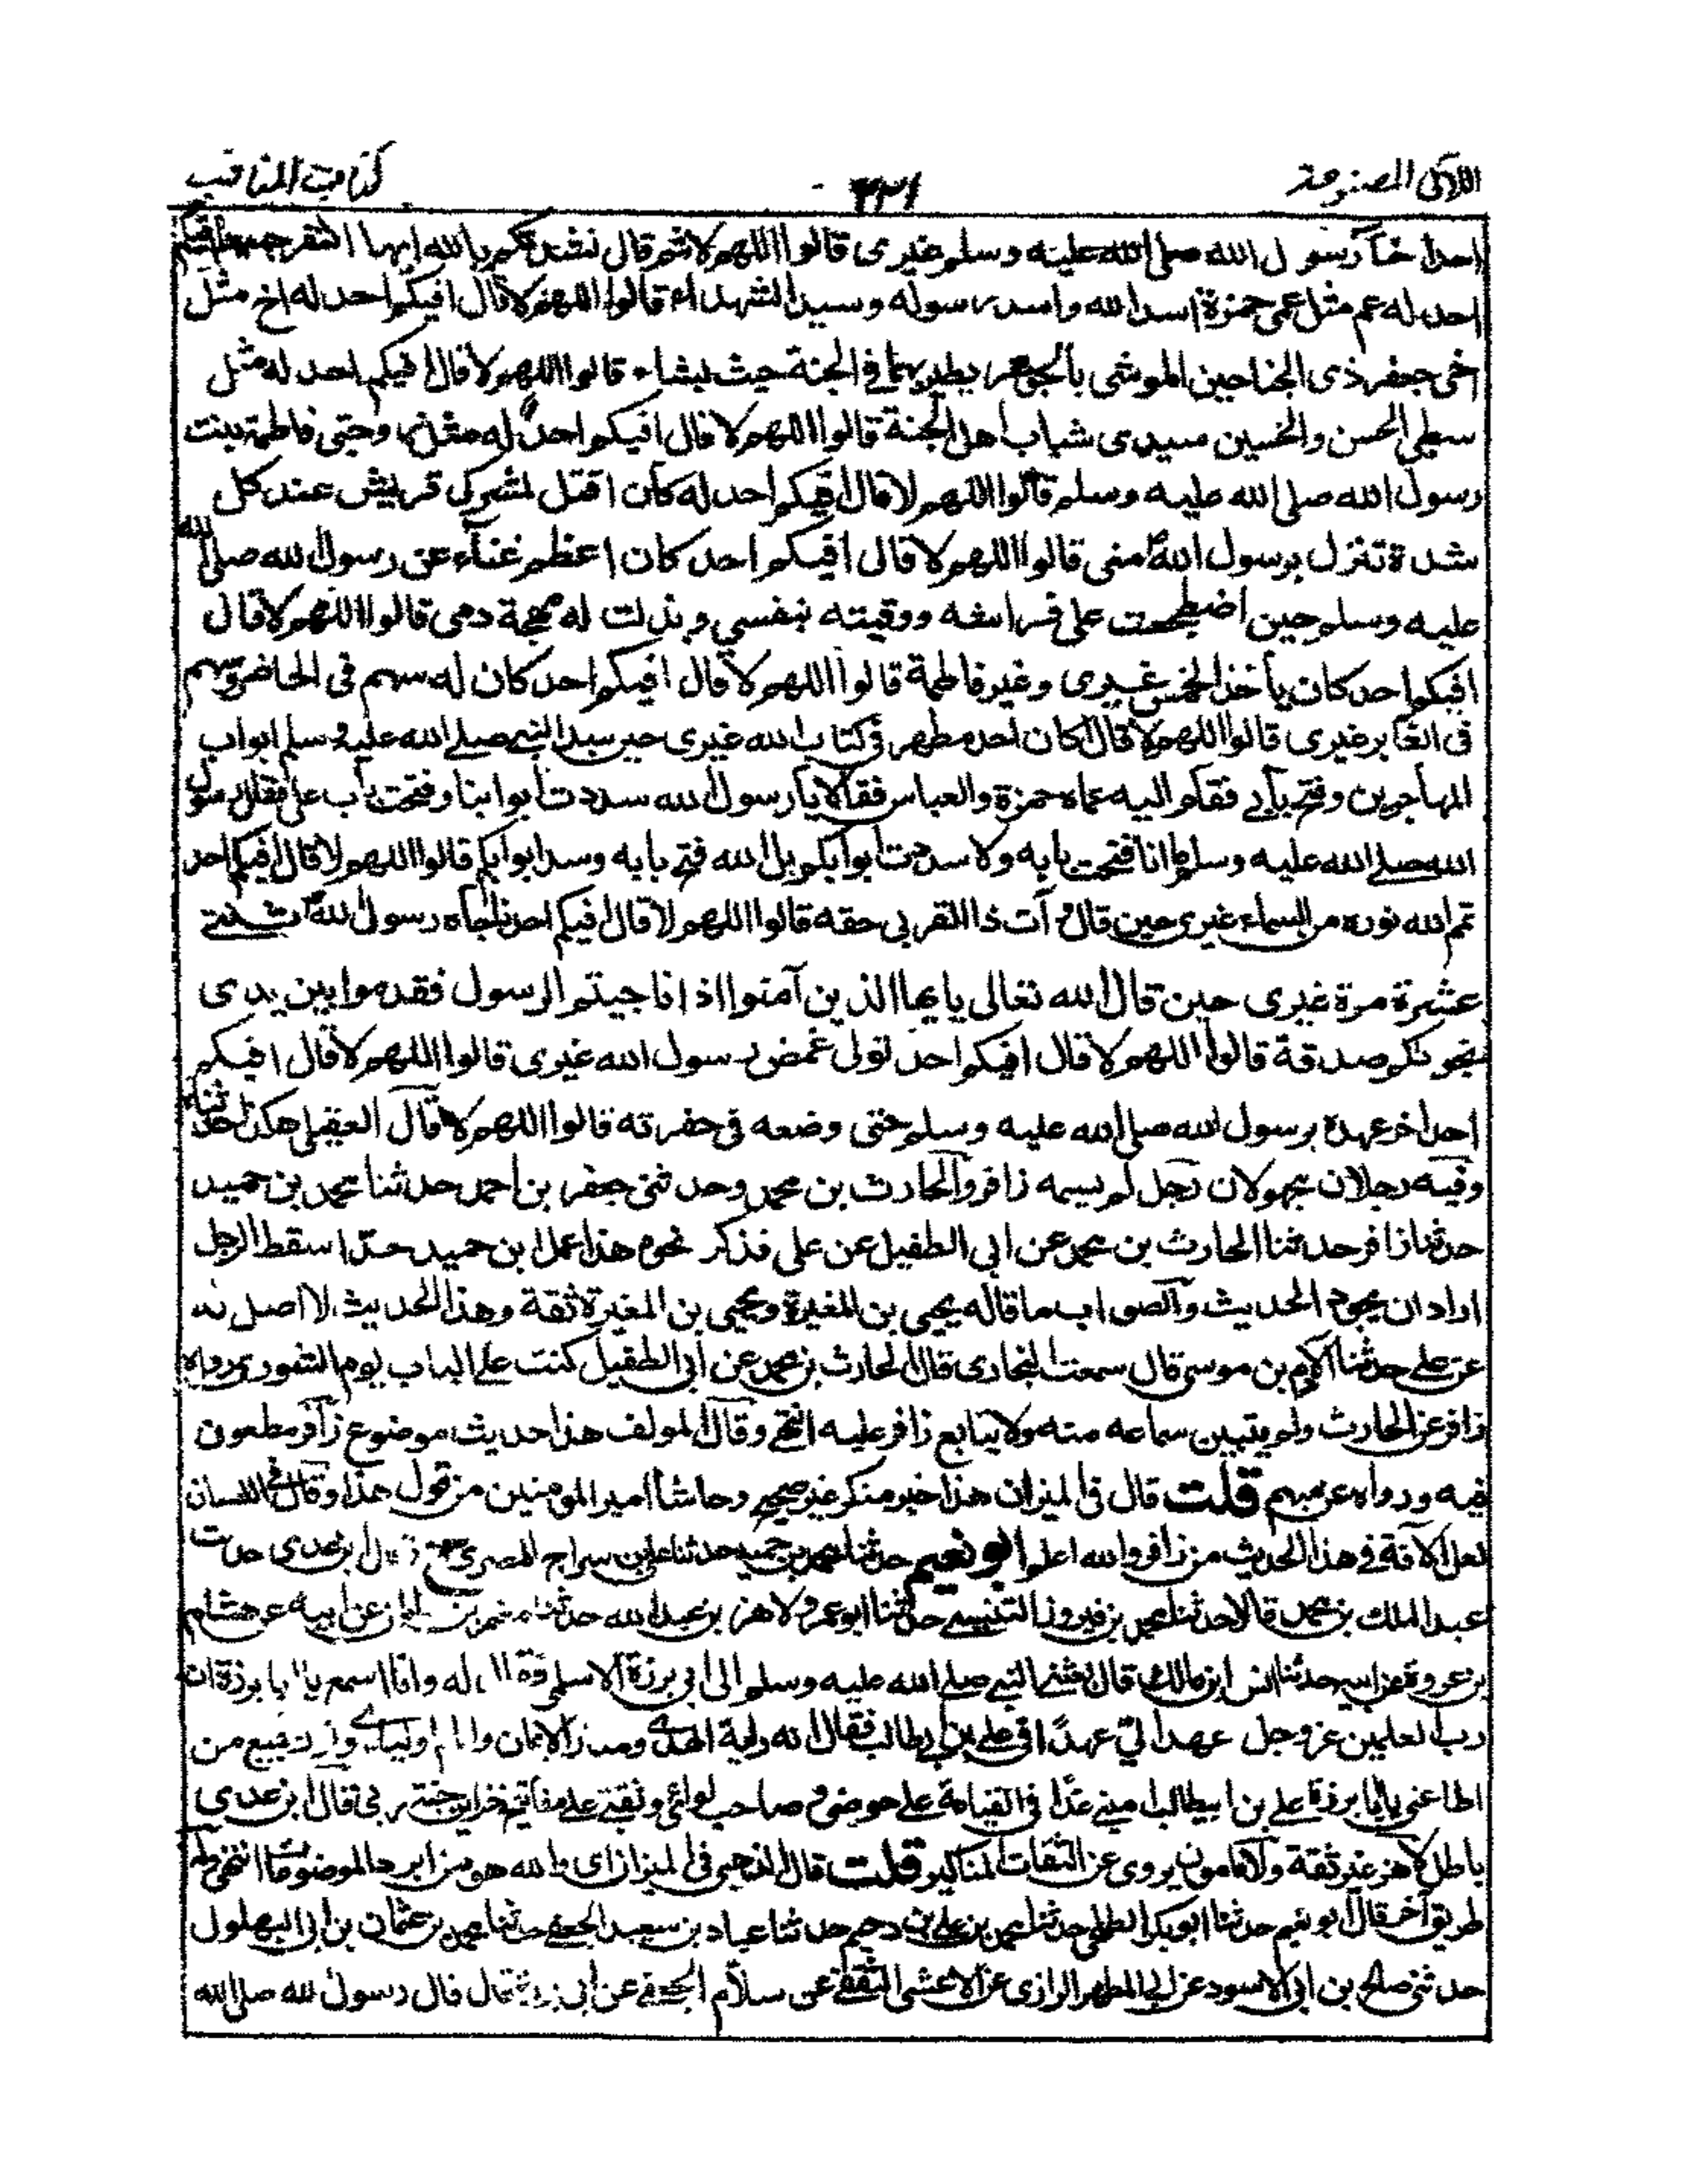 اللآلى المصنوعة ٣٢١ كتاب المناقب
احدا خا رسول الله صلى الله عليه وسلم غيرى قالوا اللهم لا ثم قال نشدتكم بالله ايها النفر جميعا افيكم
احد له عم مثل عمى حمزة اسد الله واسد رسوله وسيد الشهداء قالوا اللهم لا قال افيكم احد له اخ مثل
اخى جعفر ذى الجناحين الموشى بالجوهر يطير بهما فى الجنة حيث يشاء قالوا اللهم لا قال افيكم احد له مثل
سبطى الحسن والحسين سيدى شباب اهل الجنة قالوا اللهم لا قال افيكم احد له مثل زوجتى فاطمة بنت
رسول الله صلى الله عليه وسلم قالوا اللهم لا قال افيكم احد له كان اقتل لمشركى قريش عند كل
شدة تنزل برسول الله منى قالوا اللهم لا قال افيكم احد كان اعظم غناء عن رسول الله صلى الله
عليه وسلم حين اضطجعت على فراشه ووقيته بنفسى وبذلت له مهجة دمى قالوا اللهم لا قال
افيكم احد كان يأخذ الخمس غيرى وغير فاطمة قالوا اللهم لا قال افيكم احد كان له سهم فى الحاضر وسهم
فى الغابر غيرى قالوا اللهم لا قال اكان احد مطهر فى كتاب الله غيرى حين سد النبى صلى الله عليه وسلم ابواب
المهاجرين وفتح بابى فقام اليه عماه حمزة والعباس فقالا يا رسول الله سددت ابوابنا وفتحت باب على فقال رسول
الله صلى الله عليه وسلم ما انا فتحت بابه ولا سددت ابوابكم بل الله فتح بابه وسد ابوابكم قالوا اللهم لا قال افيكم احد
تم الله نوره من السماء غيرى حين قال وآت ذا القربى حقه قالوا اللهم لا قال افيكم احد ناجاه رسول الله ثنتى
عشرة مرة غيرى حين قال الله تعالى يا يها الذين آمنوا اذا ناجيتم الرسول فقدموا بين يدى
نجوىكم صدقة قالوا اللهم لا قال افيكم احد تولى غمض رسول الله غيرى قالوا اللهم لا قال افيكم
احد اخر عهده برسول الله صلى الله عليه وسلم حتى وضعه فى حفرته قالوا اللهم لا قال العقيلى هكذا حدثناه
وفيه رجلان مجهولان رجل لم يسمه زافر والحارث بن محمد وحدثنى جعفر بن احمد حدثنا محمد بن حميد
حدثنا زافر حدثنا الحارث بن محمد عن ابى الطفيل عن على فذكر نحوه هذا عمل ابن حميد حدا اسقط الرجل
اراد ان يجود الحديث والصواب ما قاله يحيى بن المغيرة ويحيى بن المغيرة ثقة وهذا الحديث لا اصل له
عن على حدثنا آدم بن موسى قال سمعت البخارى قال الحارث بن محمد عن ابى الطفيل كنت على الباب يوم الشورى رواه
زافر عن الحارث ولم يتبين سماعه منه ولا يتابع زافر عليه انتهى وقال المولف هذا حديث موضوع زافر مطعون
فيه ورواه عن مبهم قلت قال فى الميزان هذا خبر منكر غير صحيح وحاشا امير المومنين من قول هذا وقال فى اللسان
لعل الآفة فى هذا الحديث من زافر والله اعلم ابو نعيم حدثنا محمد بن حميد حدثنا على بن سراج المصرى ح قال ابن عدى حدثنا
عبد الملك بن محمد قالا حدثنا محمد بن فيروز التنيسى حدثنا ابو عمرو لاهز بن عبد الله حدثنا معتمر بن سليمان عن ابيه عن هشام
بن عروة عن ابيه حدثنا انس ابن مالك قال بعثنى النبى صلى الله عليه وسلم الى ابى برزة الاسلمى فقال له وانا اسمع يا ابا برزة ان
رب العلمين عز وجل عهد الىّ عهدا فى على بن ابى طالب فقال انه راية الهدى ومنار الايمان وامام اوليائى ونور جميع من
اطاعنى يا ابا برزة على بن ابيطالب امينى غدا فى القيامة على حوضى وصاحب لوائى وثقتى على مفاتيح خزائن جنة ربى قال ابن عدى
باطل لاهز غير ثقة ولا مامون يروى عن الثقات المناكير قلت قال الذهبى فى الميزان اى والله هو من ابرد الموضوعات انتهى وله
طريق آخر قال ابو نعيم حدثنا ابو بكر الطلحى حدثنا محمد بن على بن دحيم حدثنا عباد بن سعيد الجعفى حدثنا محمد بن عثمان بن ابى البهلول
حدثنى صالح بن ابى الاسود عن ابى المطهر الرازى عن الاعشى الثقفى عن سلام الجعفى عن ابى برزة قال قال رسول الله صلى الله